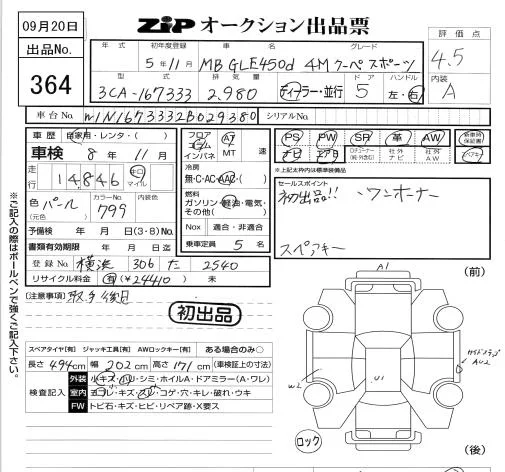 09月20日
ZiP オークション出品票
出品No.
364
年式 初年度登録 車名 グレード
5年11月 MB GLE450d 4M クーペ スポーツ
評価点
4.5
型式 排気量 ドア ハンドル
3CA-167333 2,980 ディーラー・並行 5 左・右
内装
A
車台No. W1N1673332B029380
シリアルNo.
車歴 自家用・レンタ・( )
車検 8年 11月
走行 14,846 キロ マイル
色 パール カラーNo. 799 内装色
(元色)
予備検 年 月 日(3・8)No.
書類有効期限 年 月 日迄
登録No. 横浜 306 た 2540
リサイクル料金 有(¥24410) 未
フロア コラム インパネ
A7 MT 速
冷房
無・C・AC・AAC・( )
燃料
ガソリン・軽油・電気・
その他( )
Nox 適合・非適合
乗車定員 5 名
PS PW SR 革 AW 新車時保証書
ナビ エアB Dチューナー 社外ナビ 社外A/W スペアキー
※上記太枠内は標準装備品
セールスポイント
初出品!! ・ワンオーナー
スペアキー
[注意事項]
初出品
スペアタイヤ[有] ジャッキ工具[有] AWロックキー[有] ある場合のみ○
長さ 494cm 幅 202cm 高さ 171cm (車検証上の寸法)
検査記入
外装 小キズ・ハリ・シミ・ホイルA・ドアミラー(A・ワレ)
室内 ヨゴレ・キズ・スレ・コゲ・穴・キレ・破れ・ウキ
FW トビ石・キズ・ヒビ・リペア跡・X要ス
※ご記入の際はボールペンで強くご記入下さい。
(前)
A1
W2
U1
ロック
(後)